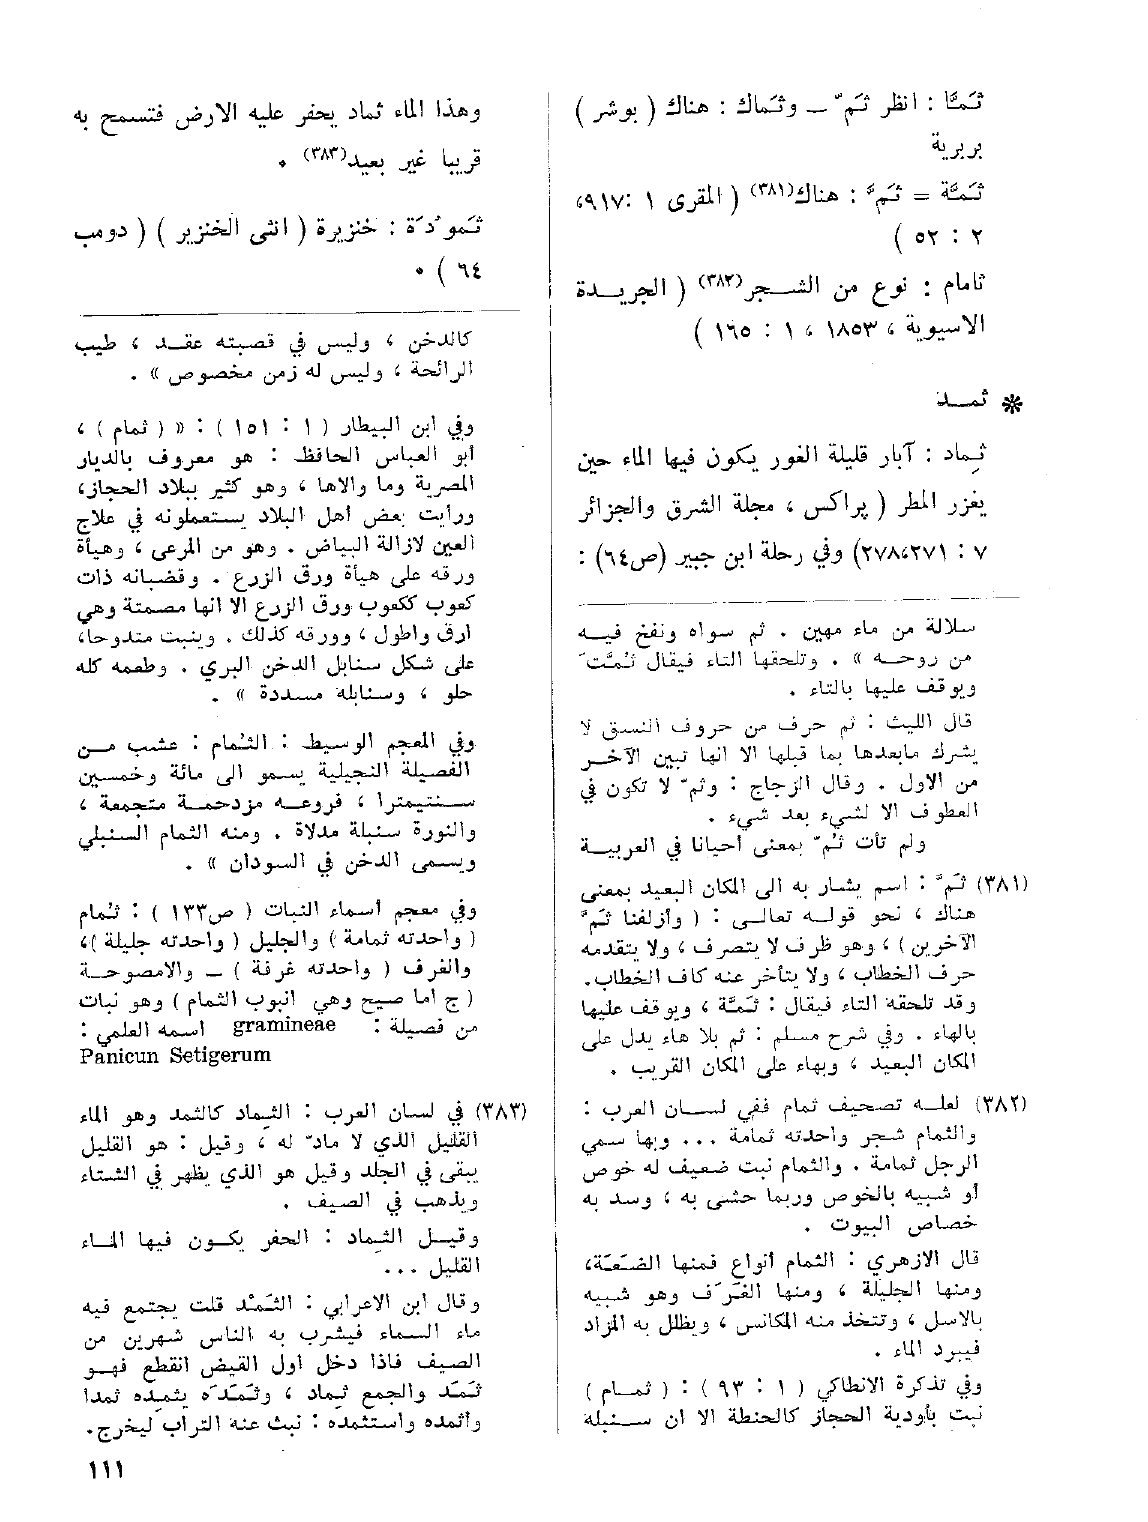 ثَمَّا : انظر ثَمّ – وثَمَاك : هناك ( بوشر )
بربرية
ثَمَّة = ثَمَّ : هناك(٣٨١) ( المقرى ١ :٩١٧،
٢ : ٥٢ )
ثامام : نوع من الشــجر(٣٨٢) ( الجريــدة
الاسيوية ، ١٨٥٣ ، ١ : ١٦٥ )
* ثمــد
ثِماد : آبار قليلة الغور يكون فيها الماء حين
يغزر المطر ( پراكس ، مجلة الشرق والجزائر
٧ : ٢٧١،٢٧٨) وفي رحلة ابن جبير (ص٦٤) :
وهذا الماء ثماد يحفر عليه الارض فتسمح به
قريبا غير بعيد(٣٨٣) .
ثَمودَة : خنزيرة ( انثى الخنزير ) ( دومب
٦٤ ) .
سلالة من ماء مهين . ثم سواه ونفخ فيــه
من روحــه » . وتلحقها التاء فيقال ثُمَّتَ
ويوقف عليها بالتاء .
قال الليث : ثم حرف من حروف النسق لا
يشرك مابعدها بما قبلها الا انها تبين الآخــر
من الاول . وقال الزجاج : وثمّ لا تكون في
العطوف الا لشيء بعد شيء .
ولم تأت ثُمّ بمعنى أحيانا في العربيــة
(٣٨١) ثَمَّ : اسم يشار به الى المكان البعيد بمعنى
هناك ، نحو قولــه تعالــى : ( وأزلفنا ثَمَّ
الآخرين ) ، وهو ظرف لا يتصرف ، ولا يتقدمه
حرف الخطاب ، ولا يتأخر عنه كاف الخطاب.
وقد تلحقه التاء فيقال : ثَمَّة ، ويوقف عليها
بالهاء . وفي شرح مسلم : ثم بلا هاء يدل على
المكان البعيد ، وبهاء على المكان القريب .
(٣٨٢) لعلــه تصحيف ثمام ففي لســان العرب :
والثمام شجر واحدته ثمامة ... وبها سمي
الرجل ثمامة . والثمام نبت ضعيف له خوص
أو شبيه بالخوص وربما حشى به ، وسد به
خصاص البيوت .
قال الازهري : الثمام أنواع فمنها الضَعَة،
ومنها الجليلة ، ومنها الغَرَف وهو شبيه
بالاسل ، وتتخذ منه المكانس ، ويظلل به المزاد
فيبرد الماء .
وفي تذكرة الانطاكي ( ١ : ٩٣ ) : ( ثمــام )
نبت بأودية الحجاز كالحنطة الا ان ســنبله
كالدخن ، وليس في قصبته عقــد ، طيب
الرائحة ، وليس له زمن مخصوص » .
وفي ابن البيطار ( ١ : ١٥١ ) : « ( ثمام ) ،
أبو العباس الحافظ : هو معروف بالديار
المصرية وما والاها ، وهو كثير ببلاد الحجاز،
ورأيت بعض أهل البلاد يستعملونه في علاج
العين لازالة البياض . وهو من المرعى ، وهيأة
ورقه على هيأة ورق الزرع . وقضبانه ذات
كعوب ككعوب ورق الزرع الا انها مصمتة وهي
ارق واطول ، وورقه كذلك . وينبت متدوحا،
على شكل سنابل الدخن البري . وطعمه كله
حلو ، وسنابله مسددة » .
وفي المعجم الوسيط : الثُمام : عشب مــن
الفصيلة النجيلية يسمو الى مائة وخمسين
ســنتيمترا ، فروعــه مزدحمــة متجمعة ،
والنورة سنبلة مدلاة . ومنه الثمام السنبلي
ويسمى الدخن في السودان » .
وفي معجم أسماء النبات ( ص١٣٣ ) : ثُمام
( واحدته ثمامة ) والجليل ( واحدته جليلة )،
والغرف ( واحدته غرفة ) – والامصوخــة
( ج اماصيخ وهي انبوب الثمام ) وهو نبات
من فصيلة : gramineae اسمه العلمي :
Panicun Setigerum
(٣٨٣) في لسان العرب : الثِماد كالثمد وهو الماء
القليل الذي لا مادّ له ، وقيل : هو القليل
يبقى في الجلد وقيل هو الذي يظهر في الشتاء
ويذهب في الصيف .
وقيــل الثماد : الحفر يكــون فيها المــاء
القليل ...
وقال ابن الاعرابي : الثَمْد قلت يجتمع فيه
ماء السماء فيشرب به الناس شهرين من
الصيف فاذا دخل أول القيض انقطع فهــو
ثَمَد والجمع ثِماد ، وثَمَدَه يثمده ثمدا
وأثمده واستثمده : نبث عنه التراب ليخرج.
١١١